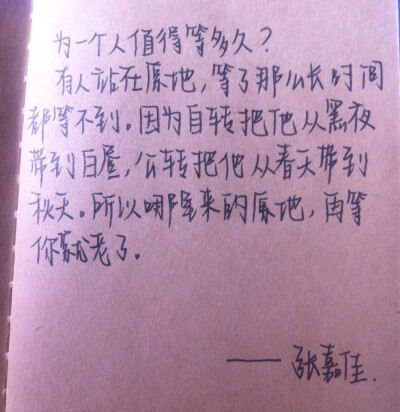 为一个人值得等多久？
有人站在原地，等了那么长时间
都等不到。因为自转把他从黑夜
带到白昼，公转把他从春天带到
秋天。所以哪有来的原地，再等
你就老了。
——张嘉佳.